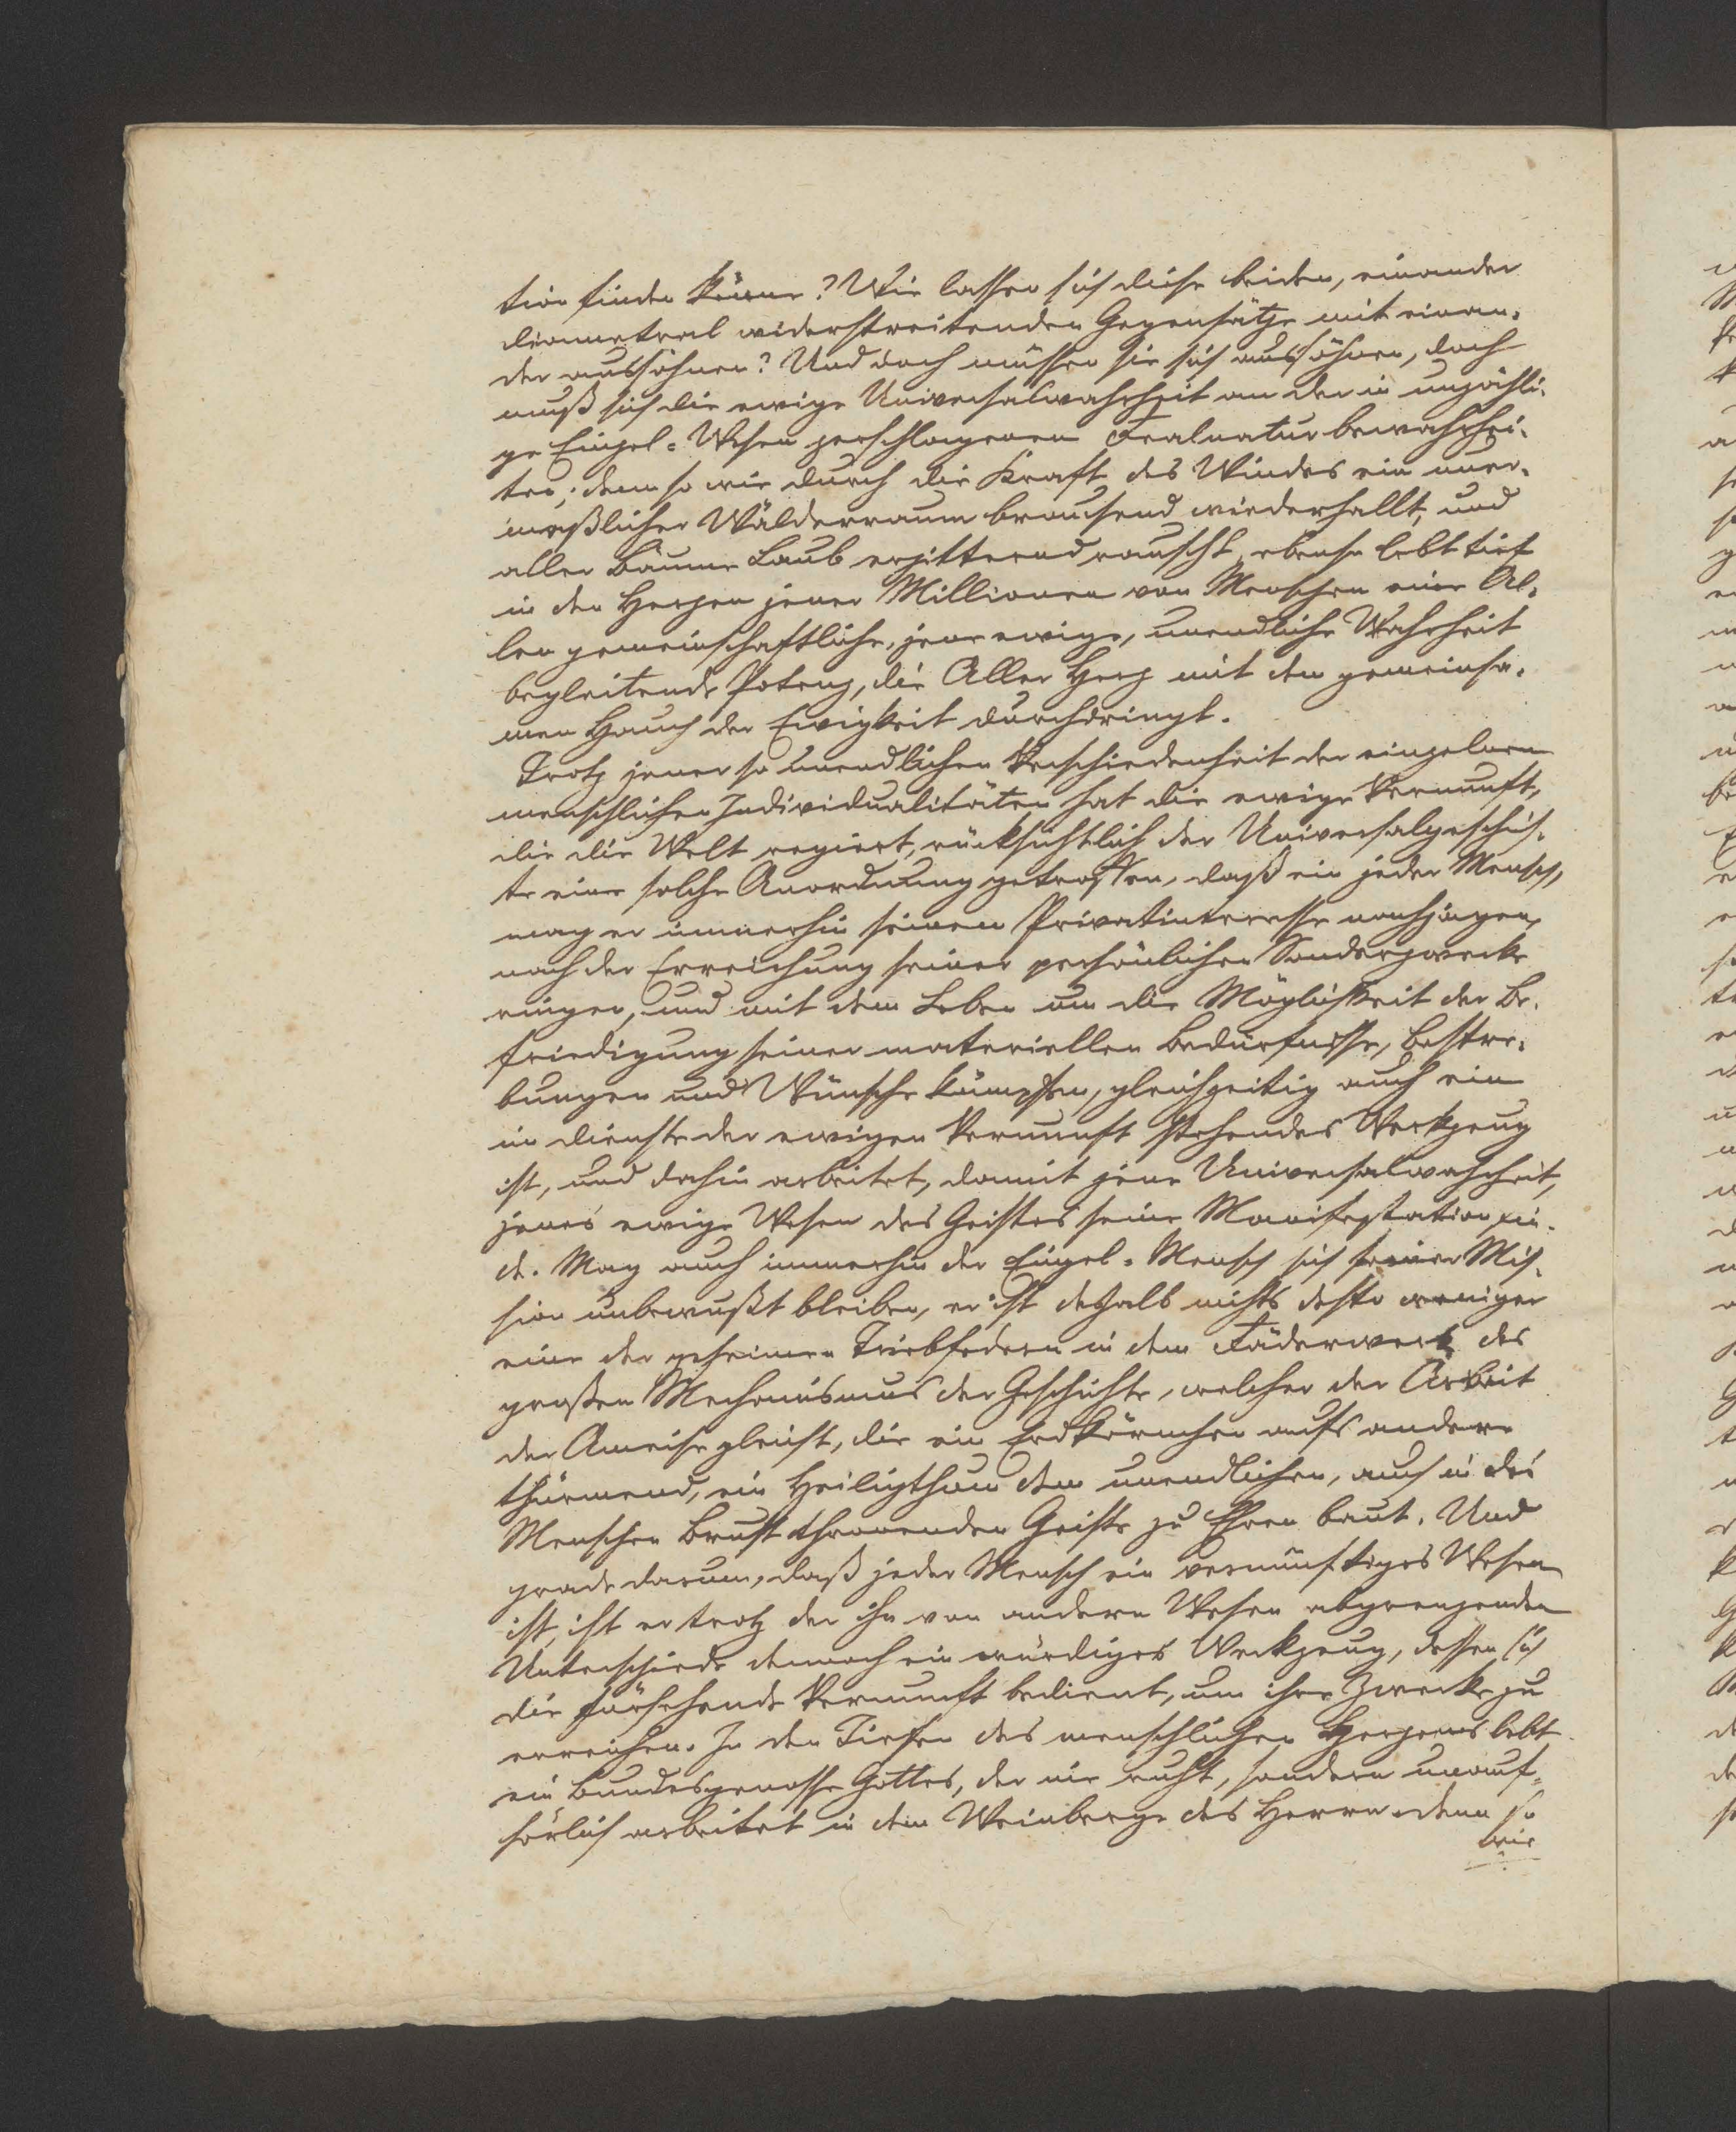 tion finden könne? Wie lassen sich diese beiden, einander
diametral widerstreitenden Gegensätze mit einan-
der aussöhnen? Und doch müssen sie sich aussöhnen, doch
muß sich die ewige Universalwahrheit an der in unzähli-
ge Einzel-Wesen zerschlagenen Erdnatur bewahrhei-
ten; denn so wie durch die Kraft des Windes ein uner-
meßlicher Wälderraum brausend wiederhallt, und
aller Bäume Laub erzitternd rauscht, ebenso lebt tief
in den Herzen jener Millionen von Menschen eine Al-
len gemeinschaftliche, jene ewige, unendliche Wahrheit
begleitende Potenz, die Aller Herz mit dem gemeinsa-
men Hauch der Ewigkeit durchdringt.
Trotz jener so unendlichen Verschiedenheit der einzelnen
menschlichen Individualitäten hat die ewige Vernunft,
die die Welt regiert, rücksichtlich der Universalgeschich-
te eine solche Anordnung getroffen, daß ein jeder Mensch,
mag er immerhin seinem Privatinteresse nachjagen,
nach der Erreichung seiner persönlichen Sonderzwecke
ringen, und mit dem Leben um die Möglichkeit der Be-
friedigung seiner materiellen Bedürfnisse, Bestre-
bungen und Wünsche kämpfen, gleichzeitig auch ein
im Dienste der ewigen Vernunft stehendes Werkzeug
ist, und dahin arbeitet, damit jene Universalwahrheit,
jenes ewige Wesen des Geistes seine Manifestation fin-
de. Mag auch immerhin der Einzel-Mensch sich seiner Mis-
sion unbewußt bleiben, er ist deshalb nichts desto weniger
eine der geheimen Triebfedern in dem Räderwerk des
großen Mechanismus der Geschichte, welcher der Arbeit
der Ameise gleicht, die ein Erdkörnchen aufs andere
thürmend, ein Heiligthum dem unendlichen, auch in des
Menschen Brust thronenden Geiste zu Ehren baut. Und
grade darum, daß jeder Mensch ein vernünftiges Wesen
ist, ist er trotz der ihn von andern Wesen abgrenzenden
Unterschiede dennoch ein würdiges Werkzeug, dessen sich
die fürsehende Vernunft bedient, um ihre Zwecke zu
erreichen. In den Tiefen des menschlichen Herzens lebt
ein Bundesgenosse Gottes, der nie ruht, sondern unauf-
hörlich arbeitet in dem Weinberge des Herrn denn so
wie